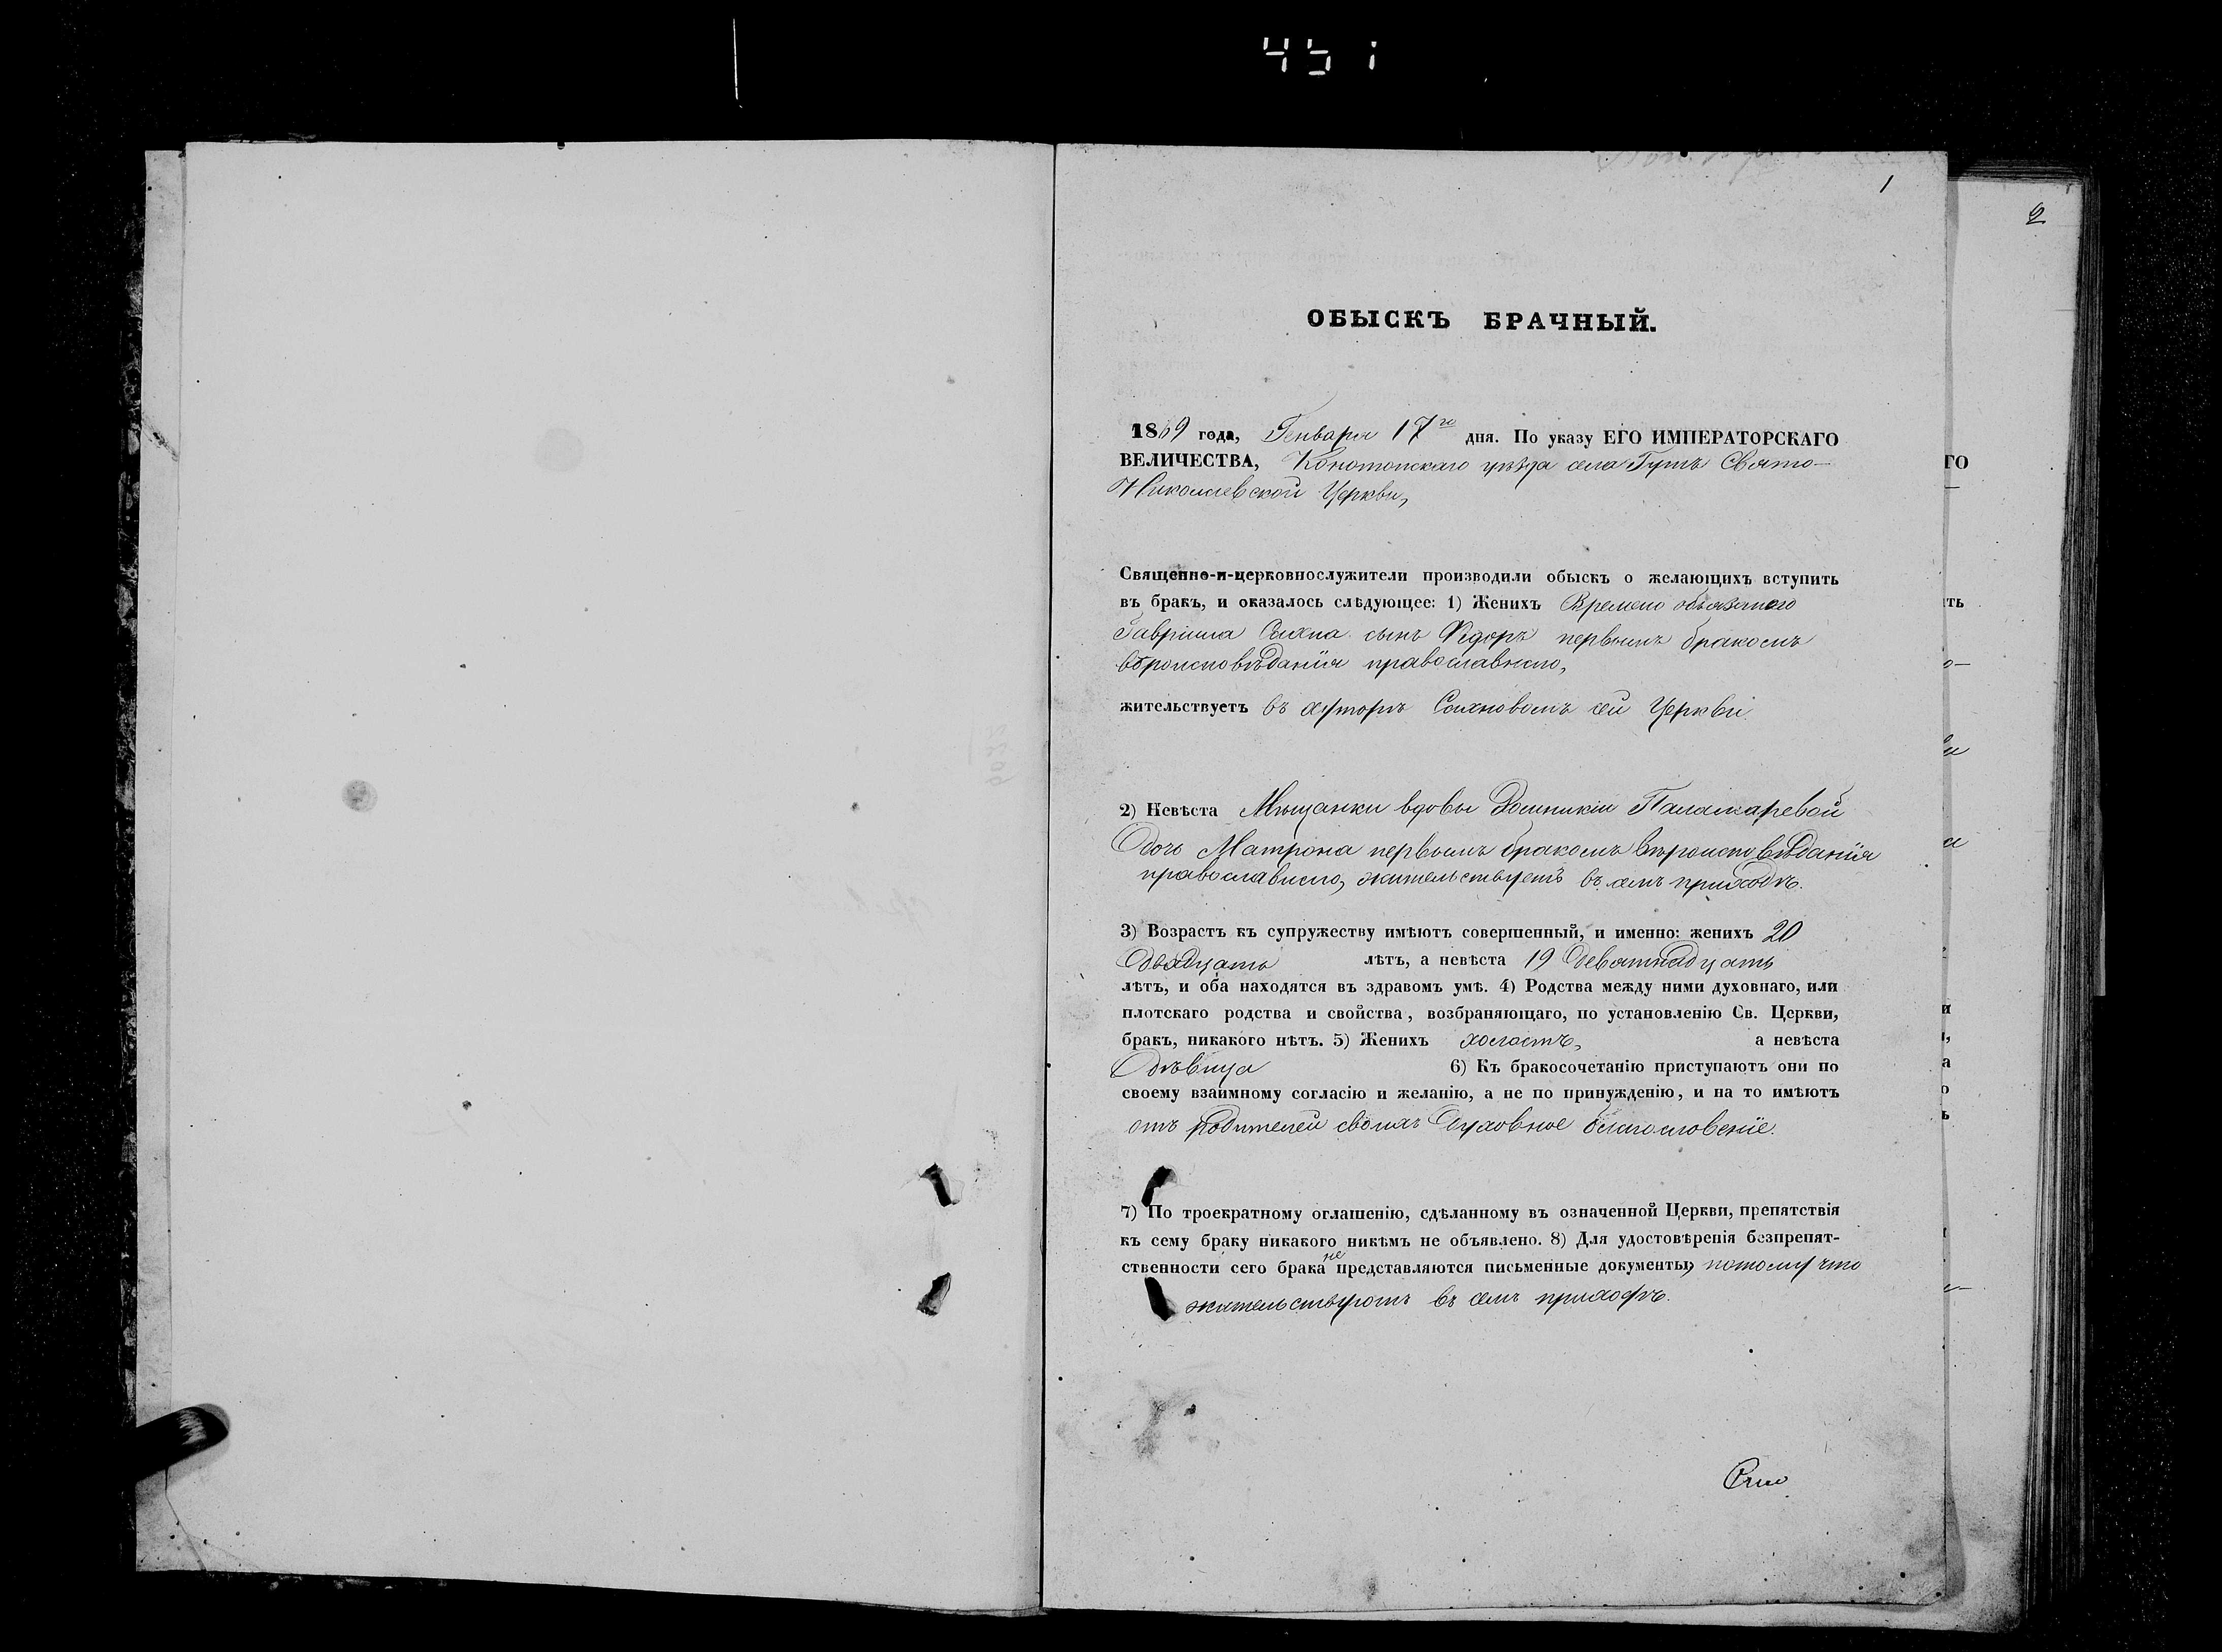 451
1
2
ОБЫСКЪ БРАЧНЫЙ.
1869 года, Генваря 17го дня. По указу ЕГО ИМПЕРАТОРСКАГО
ВЕЛИЧЕСТВА, Конотопскаго уѣзда села Гутъ Свято-
Николаевской Церкви,
Священно-и-церковнослужители производили обыскъ о желающихъ вступить
въ бракъ, и оказалось слѣдующее: 1) Женихъ Времено обязаного
Гавриила Сахна сынъ Федоръ первымъ бракомъ
вѣроисповѣданія православного,
жительствуетъ въ хуторѣ Сахновомъ сей Церкви.
2) Невѣста Мѣщанки вдовы Домникіи Паламаревой
дочь Матрона первымъ бракомъ вѣроисповѣданія
православного, жительствуетъ въ семъ приходѣ.
3) Возрастъ къ супружеству имѣютъ совершенный, и именно: женихъ 20
двадцать лѣтъ, а невѣста 19 девятнадцать
лѣтъ, и оба находятся въ здравомъ умѣ. 4) Родства между ними духовнаго, или
плотскаго родства и свойства, возбраняющаго, по установленію Св. Церкви,
бракъ, никакого нѣтъ. 5) Женихъ холостъ, а невѣста
дѣвица 6) Къ бракосочетанію приступаютъ они по
своему взаимному согласію и желанію, а не по принужденію, и на то имѣютъ
отъ родителей своихъ духовное благословеніе.
7) По троекратному оглашенію, сдѣланному въ означенной Церкви, препятствія
къ сему браку никакого никѣмъ не объявлено. 8) Для удостовѣренія безпрепят-
ственности сего брака не представляются письменные документы, потому что
жительствуютъ въ семъ приходѣ.
Что